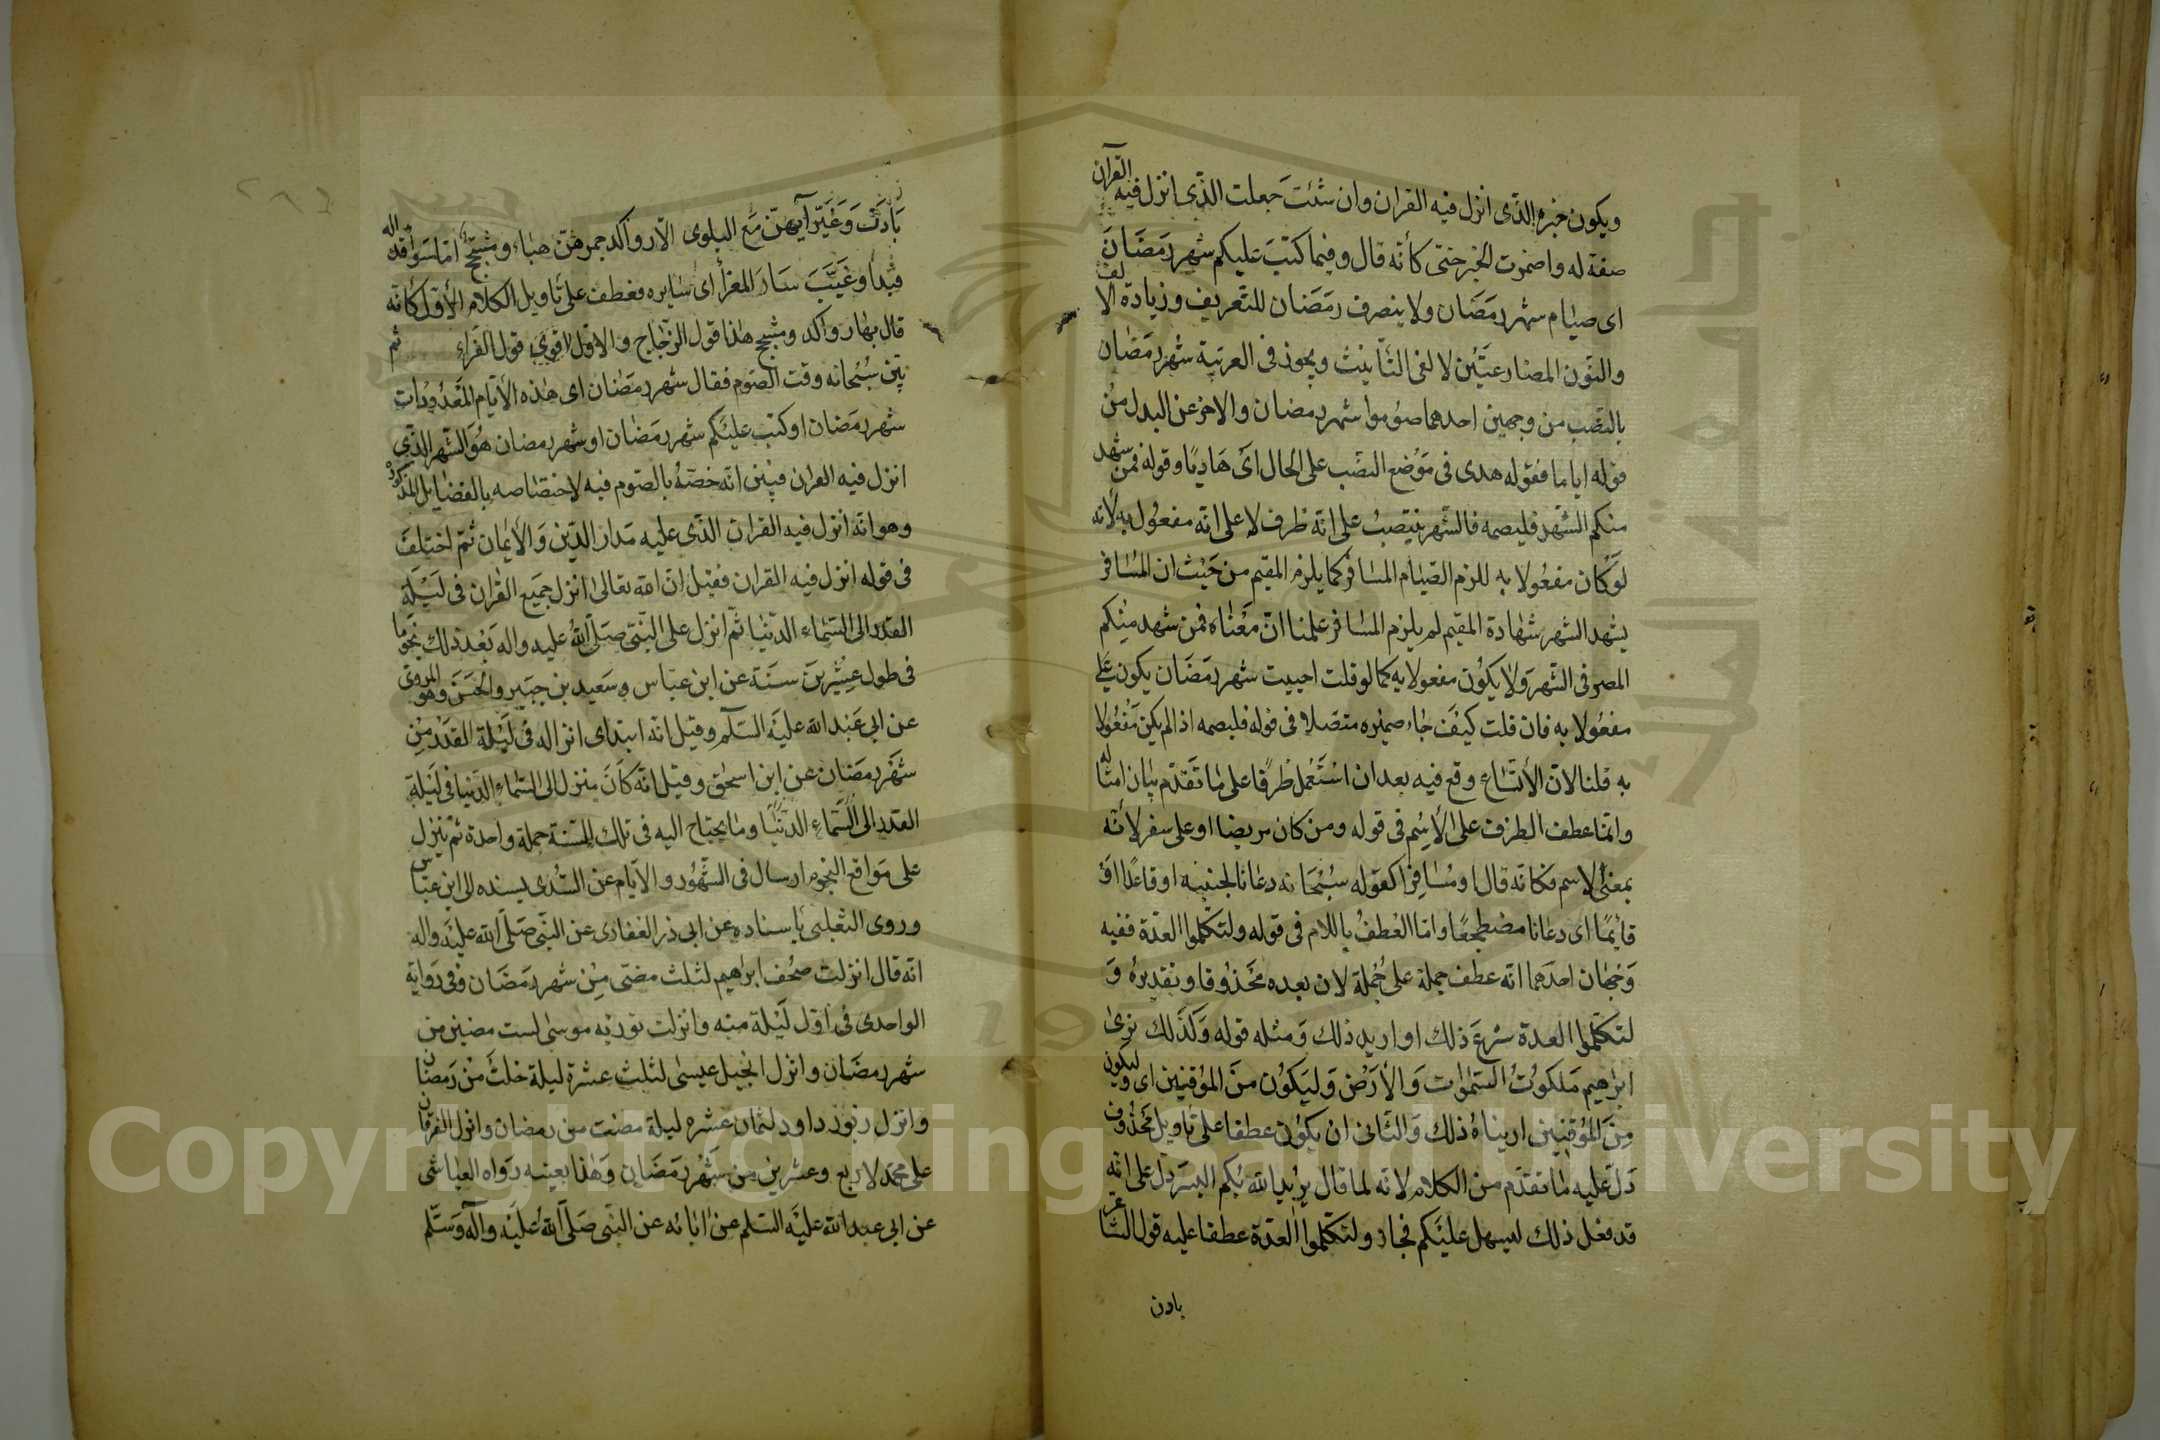 ويكون خبره الذي انزل فيه القران وان شئت جعلت الذي انزل فيه القرآن
صفة له واضمرت الخبر حتى كأنه قال وفيما كتب عليكم شهر رمضان
اى صيام شهر رمضان ولا ينصرف رمضان للتعريف وزيادة الالف
والنون المضارعتين لالفى التأنيث ويجوز فى العربية شهر رمضان
بالنصب من وجهين احدهما صوموا شهر رمضان والاخر عن البدل من
قوله اياما فقوله هدى فى موضع النصب على الحال اى هاديا وقوله فمن شهد
منكم الشهر فليصمه فالشهر ينتصب على انه ظرف لا على انه مفعول به لانه
لو كان مفعولا به للزم الصيام المسافر كما يلزم المقيم من حيث ان المسافر
يشهد الشهر شهادة المقيم لم يلزم المسافر علمنا ان معناه فمن شهد منكم
المصر فى الشهر ولا يكون مفعولا به كما لو قلت احييت شهر رمضان يكون
مفعولا به فان قلت كيف جاء ضميره متصلا فى قوله فليصمه اذا لم يكن مفعولا
به قلنا لان الأتساع وقع فيه بعد ان استعمل ظرفا على ما تقدم بيان امثاله
وانما عطف الظرف على الأسم فى قوله ومن كان مريضا او على سفر لأنه
بمعنى الاسم فكانه قال او مسافرا كقوله سبحانه دعانا لجنبه او قاعدا او
قائما اى دعانا مضطجعا واما العطف باللام فى قوله ولتكملوا العدة ففيه
وجهان احدهما انه عطف جملة على جملة لان بعده محذوفا وتقديره و
لتكملوا العدة شرع ذلك او اريد ذلك ومثله قوله وكذلك نرى
ابراهيم ملكوت السموات والأرض وليكون من الموقنين اى وليكون
من الموقنين اريناه ذلك والثانى ان يكون عطفا على تاويل محذوف
دل عليه ما تقدم من الكلام لانه لما قال يريد الله بكم اليسر دل على انه
قد فعل ذلك ليسهل عليكم فجاز ولتكملوا العدة عطفا عليه قول الشاعر
بادت
بادت وغير آيهن مع البلوى الا رواكد جمرهن هباء ومشجج اما سواء قذاله
فبدا وغيب سار المعزا اى سايره فعطف على تاويل الكلام الأول كانه
قال بها رواكد ومشجج هذا قول الزجاج والاول اقوى قول الفراء ثم
بين سبحانه وقت الصوم فقال شهر رمضان اى هذه الأيام المعدودات
شهر رمضان او كتب عليكم شهر رمضان او شهر رمضان هو الشهر الذي
انزل فيه القران فبين انه خصه بالصوم فيه لاختصاصه بالفضايل المذكورة
وهو انه انزل فيه القران الذى عليه مدار الدين والأيمان ثم اختلف
فى قوله انزل فيه القران فقيل ان الله تعالى انزل جميع القران فى ليلة
القدر الى السماء الدنيا ثم انزل على النبى صلى الله عليه واله بعد ذلك نجوما
فى طول عشرين سنة عن ابن عباس وسعيد بن جبير والحسن وهو المروى
عن ابي عبد الله عليه السلم وقيل انه ابتداى انزاله فى ليلة القدر من
شهر رمضان عن ابن اسحق وقيل انه كان ينزل الى السماء الدنيا فى ليلة
القدر الى السماء الدنيا وما يحتاج اليه فى تلك السنة جملة واحدة ثم ينزل
على مواقع النجوم ارسال فى الشهور والأيام عن السدى يسنده الى ابن عباس
وروى الثعلبى باسناده عن ابى ذر الغفارى عن النبى صلى الله عليه واله
انه قال انزلت صحف ابرهيم لثلث مضى من شهر رمضان وفى رواية
الواحدى فى اول ليلة منه وانزلت تورية موسى لست مضين من
شهر رمضان وانزل انجيل عيسى لثلث عشرة ليلة خلت من رمضان
وانزل زبور داود لثمان عشره ليلة مضت من رمضان وانزل الفرقان
على محمد لاربع وعشرين من شهر رمضان وهذا بعينه رواه العياشى
عن ابى عبد الله عليه السلم عن ابائه عن النبى صلى الله عليه وآله وسلم
Copyright © King Saud University